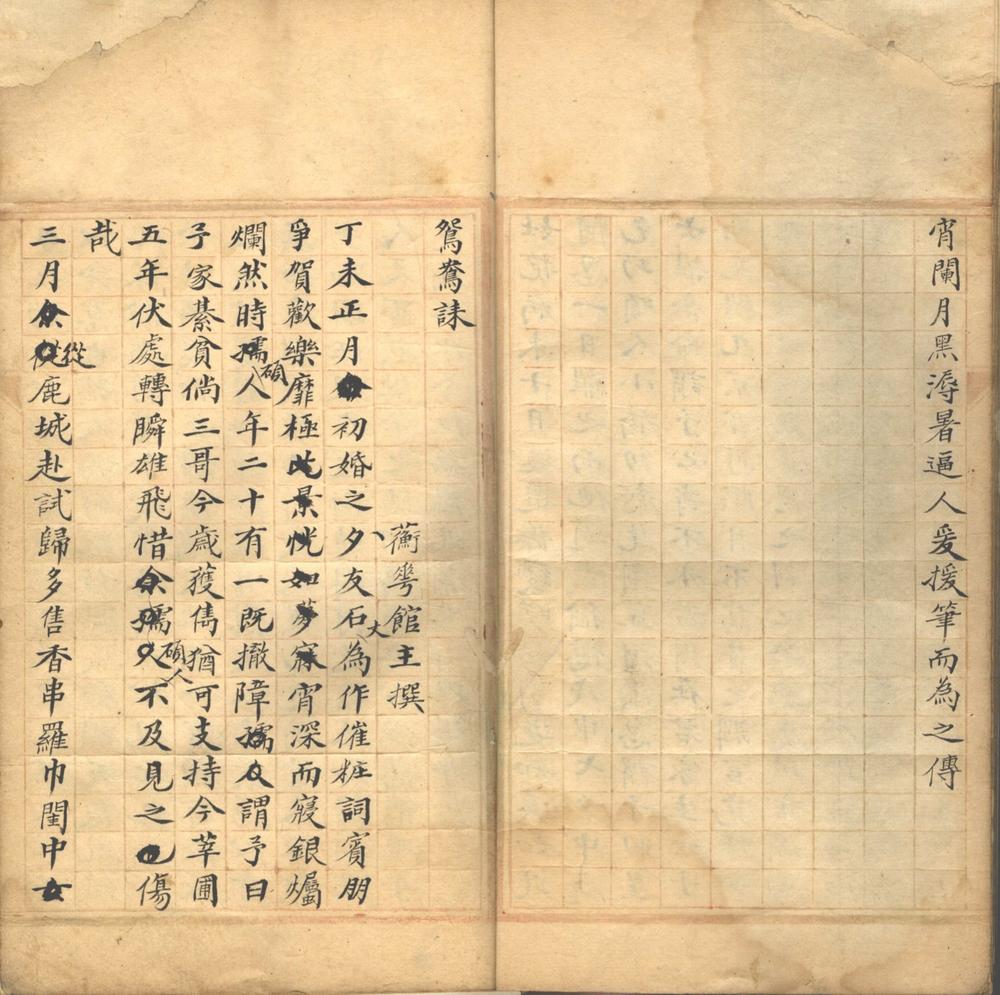 宵闌月黑溽暑逼人爰援筆而為之傳
鴛鴦誄
蘅華館主撰
丁未正月初婚之夕友石大為作催粧詞賓朋
爭賀歡樂靡極此景恍如夢寐宵深而寢銀爥
爛然時碩人年二十有一既撤障孺人謂予曰
予家綦貧倘三哥今歲獲雋猶可支持今莘圃
五年伏處轉瞬雄飛惜余孺人碩人不及見之也傷
哉
三月余從鹿城赴試歸多售香串羅巾閨中女